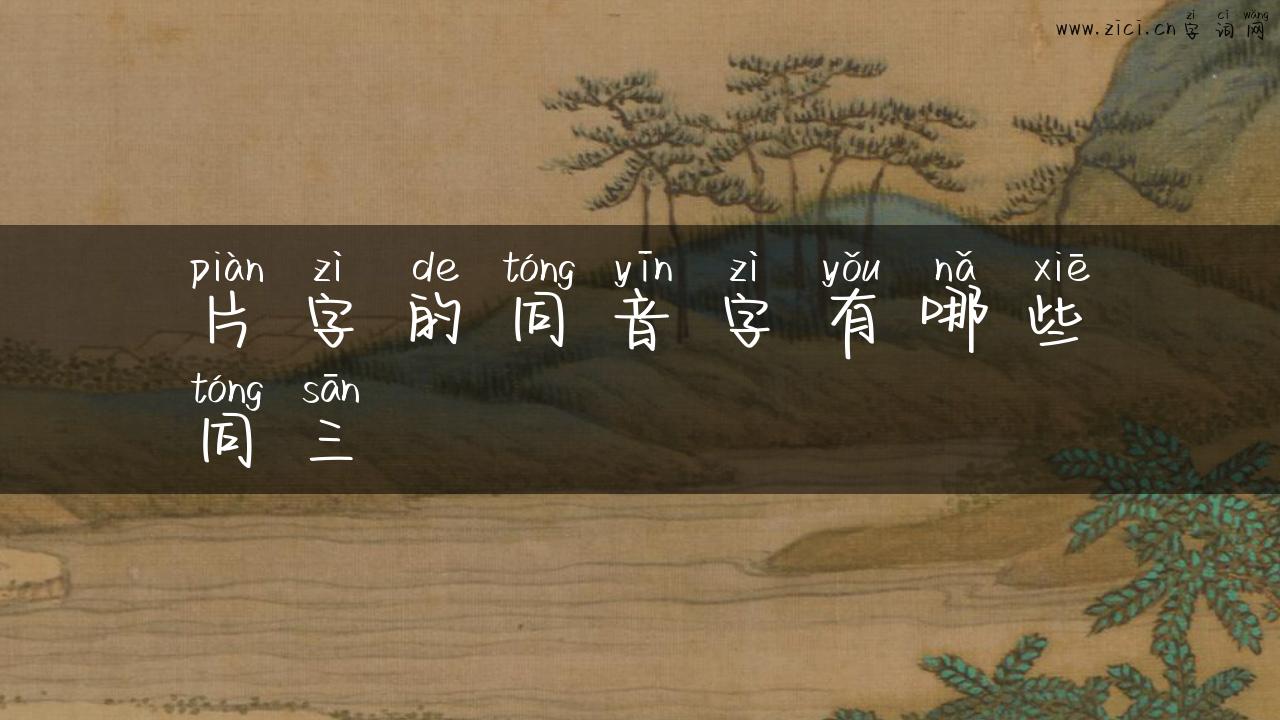 zì cí wǎng
www.zici.cn 字词网
piàn zì de tóng yīn zì yǒu nǎ xiē
片字的同音字有哪些
tóng sān
同三